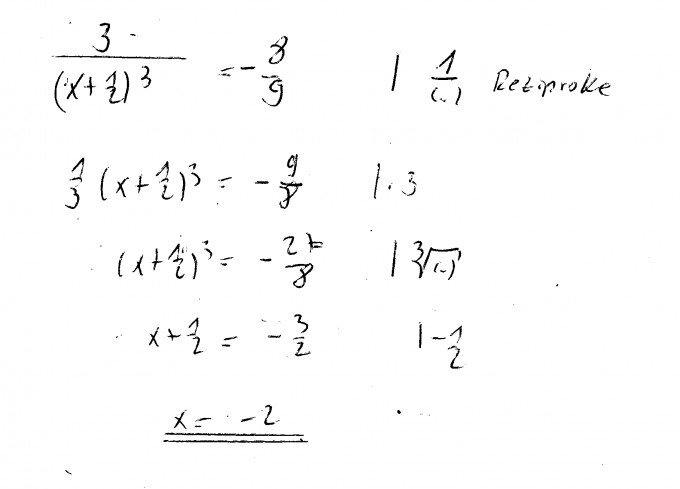 3/(x+1/2)^3 = -8/9 | 1/(..) Reziproke
1/3 (x+1/2)^3 = -9/8 | ·3
(x+1/2)^3 = -27/8 | ∛(..)
x+1/2 = -3/2 | -1/2
x = -2